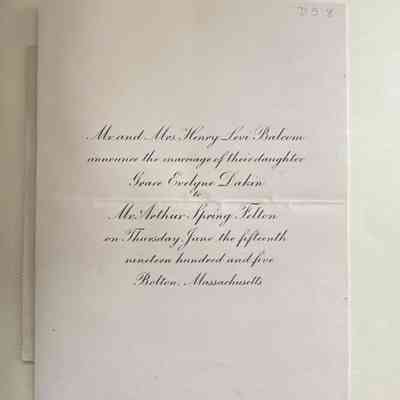 D58
Mr. and Mrs. Henry Levi Balcom
announce the marriage of their daughter
Grace Evelyne Dakin
to
Mr. Arthur Spring Felton
on Thursday, June the fifteenth
nineteen hundred and five
Bolton, Massachusetts